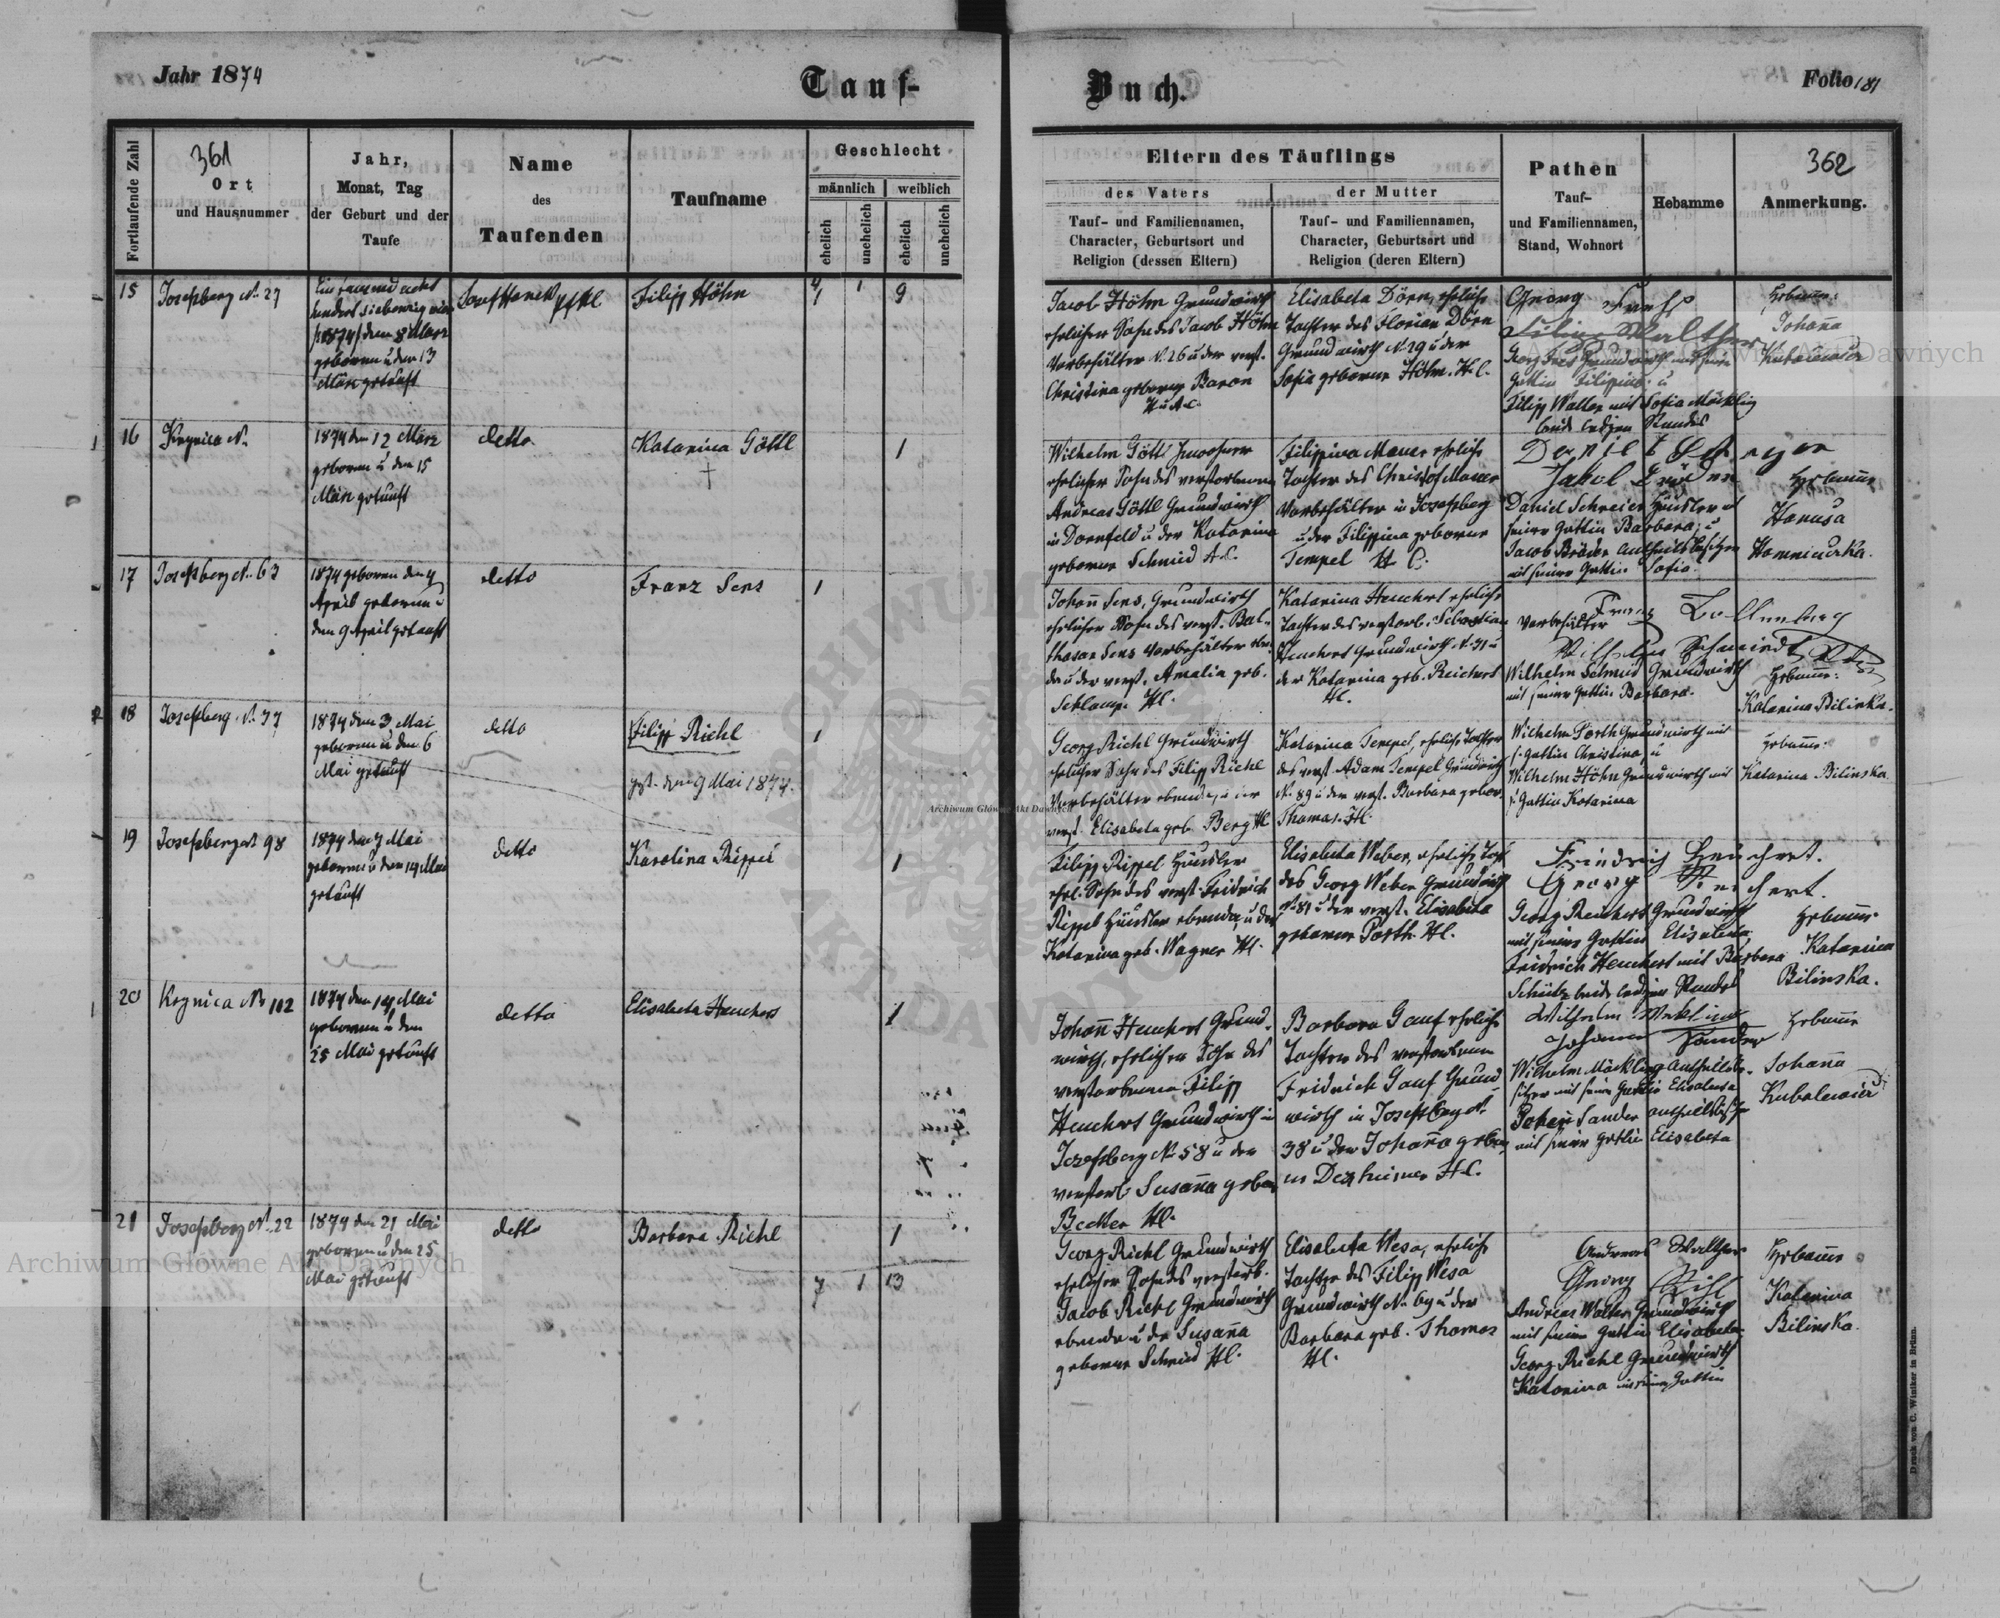 Jahr 1874
Tauf-
Buch.
Folio 181
Fortlaufende Zahl
361
Ort
und Hausnummer
Jahr,
Monat, Tag
der Geburt und der
Taufe
Name
des
Taufenden
Taufname
Geschlecht
männlich
weiblich
ehelich
unehelich
ehelich
unehelich
Eltern des Täuflings
des Vaters
Tauf- und Familiennamen,
Character, Geburtsort und
Religion (dessen Eltern)
der Mutter
Tauf- und Familiennamen,
Character, Geburtsort und
Religion (deren Eltern)
Pathen
Tauf-
und Familiennamen,
Stand, Wohnort
Hebamme
362
Anmerkung.
15
Josefsberg N. 27
hundert siebenzig vier
/1874/ den 8 März
geboren u den 13
März getauft
Filipp Höhn
4 1 9
1
Jacob Höhn Grundwirth
ehelicher Sohn des Jacob Höhn
Vorbehälter N. 26 u der verst.
Christina geborne Baron
Elisabeta Dörn, eheliche
Tochter des Florian Dörn
Grundwirth N. 29 u der
Sofia geborne Höhn. H.C.
Georg
Filipp Walther
Gattin Filipina u
Filipp Walter mit Sofia Möckling
beide ledigen Standes
Hebamme:
Johanna
16
Krynica N.
1874 den 12 März
geboren u den 15
März getauft
detto
Katarina Göttl
†
1
Wilhelm Göttl Inwohner
ehelicher Sohn des verstorbenen
Andreas Göttl Grundwirth
in Dornfeld u der Katarina
geborne Schmid A.C.
Filippina Mauer eheliche
Tochter des Christof Mauer
Vorbehälter in Josefsberg
u der Filippina geborne
Tempel H.C.
Daniel Schreier Häusler mit
seiner Gattin Barbara, u
Jacob Bräder Antheilsbesitzer
mit seiner Gattin Sofia.
Hebamme
Hanusa
17
Josefsberg N. 63
1874 geboren den 4
April geboren u
den 9 April getauft
detto
Franz Sens
1
Johann Sens, Grundwirth
ehelicher Sohn des verst. Bal-
thasar Sens Vorbehälter eben-
da u der verst. Amalia geb.
Schlamp. H.C.
Katarina Heuchert eheliche
Tochter des verstorb. Sebastian
Heuchert Grundwirth N. 31 u
der Katarina geb. Reichert
H.C.
Franz
Vorbehälter
Wilhelm Schmiedt
Wilhelm Schmid Grundwirth
mit seiner Gattin Barbara.
Hebamme:
Katarina Bilinska.
18
Josefsberg N. 77
1874 den 3 Mai
geboren u den 6
Mai getauft
detto
Filipp Riehl
gest. den 9 Mai 1874.
1
Georg Riehl Grundwirth
ehelicher Sohn des Filipp Riehl
Vorbehälter ebenda, u der
verst. Elisabeta geb. Berg H.C.
Katarina Tempel, eheliche Tochter
des verst. Adam Tempel Grundwirth
N. 89 u der verst. Barbara gebor.
Thomas. H.C.
Wilhelm Porth Grundwirth mit
s. Gattin Christina, u
Wilhelm Höhn Grundwirth mit
s. Gattin Katarina
Hebamme:
Katarina Bilinska
19
Josefsberg N 98
1874 den 7 Mai
geboren u den 14 Mai
getauft
detto
Karolina Rippel
1
Filipp Rippel, Häusler
ehel. Sohn des verst. Fridrich
Rippel Häusler ebenda, u der
Katarina geb. Wagner H.C.
Elisabeta Weber, eheliche Tocht.
des Georg Weber Grundwirth
N. 81 u der verst. Elisabeta
geborne Porth. H.C.
Friedrich Heuchert.
Georg Reichert.
Georg Reichert Grundwirth
mit seiner Gattin Elisabeta,
Fridrich Heuchert mit Barbara
Schütz beide ledigen Standes
Hebamme:
Katarina
Bilinska.
20
Krynica No 112
1874 den 14 Mai
geboren u den
25 Mai getauft
detto
Elisabeta Heuchert
1
Johann Heuchert Grund-
wirth, ehelicher Sohn des
verstorbenen Filipp
Heuchert Grundwirth in
Josefsberg N. 58 u der
verstorb. Susanna gebor.
Becker H.C.
Barbara Gauf eheliche
Tochter des verstorbenen
Fridrich Gauf Grund-
wirth in Josefsberg N.
38 u der Johanna gebor-
H.C.
Wilhelm
Johann Sander
Wilhelm Möckling Antheilsbe-
sitzer mit seiner Gattin Elisabeta
Johann Sander Antheilsbesitzer
mit seiner Gattin Elisabeta
Hebamme
Johanna
21
Josefsberg N. 22
1874 den 21 Mai
geboren u den 25
Mai getauft
detto
Barbara Riehl
1
7 1 13
Georg Riehl Grundwirth
ehelicher Sohn des verstorb.
Jacob Riehl Grundwirth
ebenda u der Susanna
geborne Schmid H.C.
Elisabeta Wesa, eheliche
Tochter des Filipp Wesa
Grundwirth N. 69 u der
Barbara geb. Thomas
H.C.
Andreas Walther
Georg Riehl
Andreas Walter Grundwirth
mit seiner Gattin Elisabeta
Georg Riehl Grundwirth
Katarina mit seiner Gattin
Hebamme
Katarina
Bilinska.
Druck von C. Winiker in Brünn.
Archiwum Główne Akt Dawnych
Archiwum Główne Akt Dawnych
Archiwum Główne Akt Dawnych
ARCHIWUM
AKT DAWNYCH